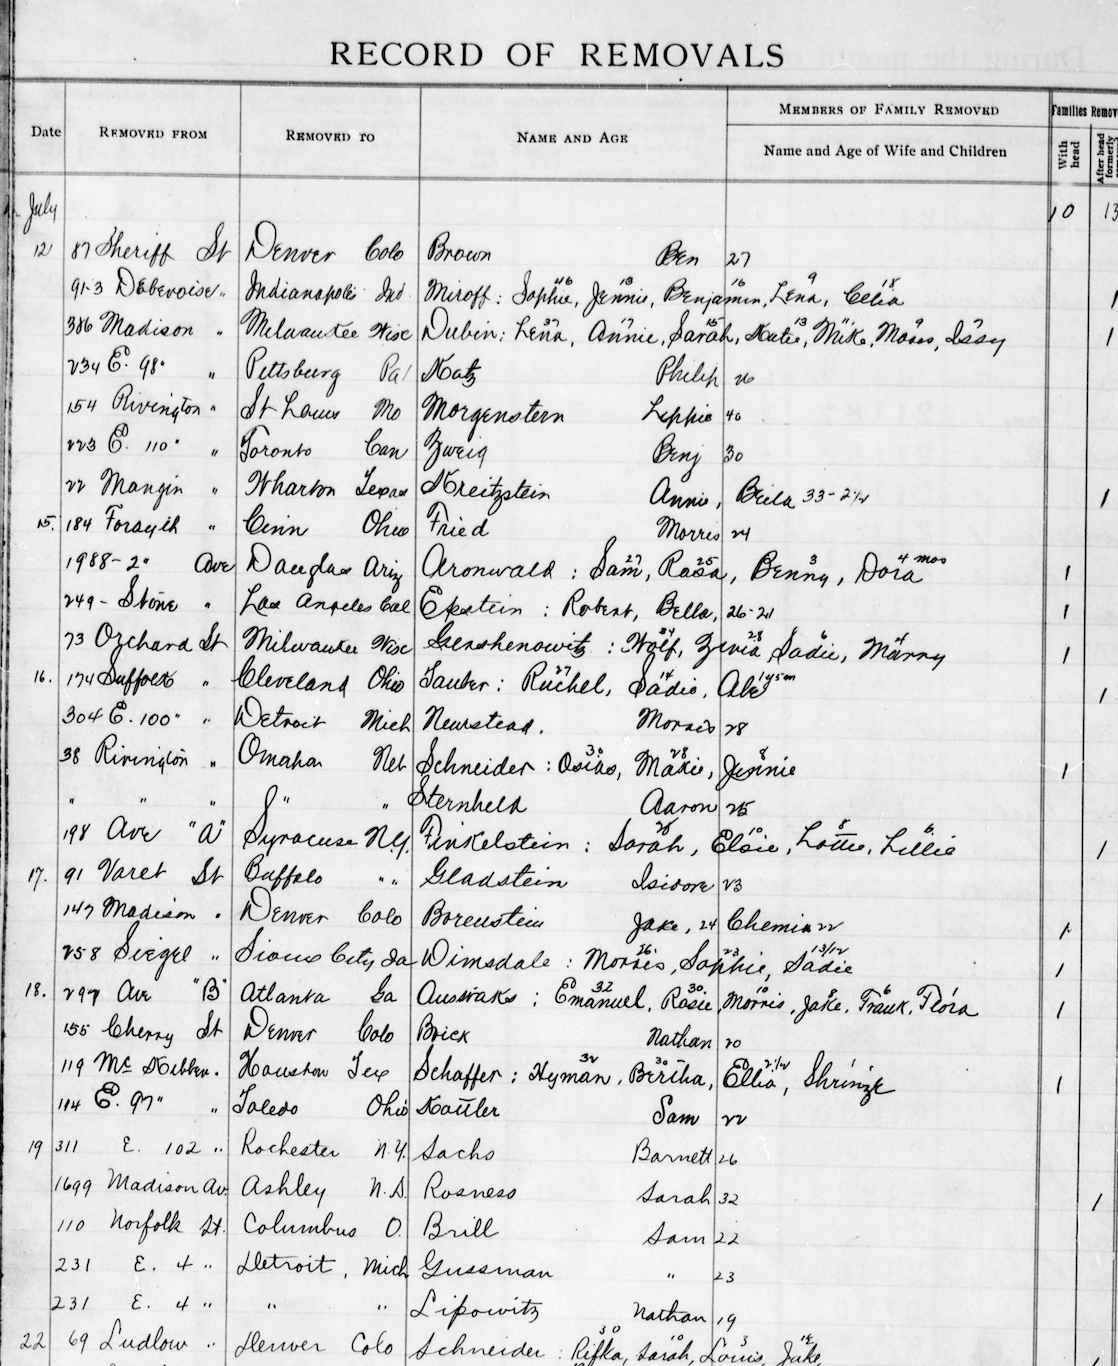 RECORD OF REMOVALS
Date REMOVED FROM REMOVED TO NAME AND AGE MEMBERS OF FAMILY REMOVED Families Remov
Name and Age of Wife and Children With head After head formerly
July 10 13
12 87 Sheriff St Denver Colo Brown Ben 27
91-3 Debevoise " Indianapolis Ind Miroff: Sophie, 46 Jennie, 18 Benjamin, 16 Lena, 9 Celia 18 1
386 Madison " Milwaukee Wisc Dubin: Lena, 37 Annie, 17 Sarah, 15 Katie, 13 Mike, 11 Moses, 9 Issy 7 1
234 E. 98" " Pittsburg Pa Katz Philip 26
154 Rivington " St Louis Mo Morgenstern Lippie 40
223 E. 110" " Toronto Can Zweig Benj 30
22 Mangin " Wharton Texas Kreitzstein Annie, Beila 33-2 1/2 1
15. 184 Forsyth " Cinn Ohio Fried Morris 24
1988-2" Ave Douglas Ariz Aronwald: Sam, 27 Rosa, 25 Benny, 3 Dora 4 mos 1
249- Stone " Los Angeles Cal Epstein: Robert, Bella, 26-21 1
73 Orchard St Milwaukee Wisc Gershenowitz: Wolf, 24 Zivia 28 Sadie, 6 Manny 4 1
16. 174 Suffolk " Cleveland Ohio Tauber: Ruchel, 27 Sadie, 14 Abe 1 1
304 E. 100" " Detroit Mich Neurstead. Morris 28
38 Rivington " Omaha Neb Schneider: Osias, 30 Makie, 28 Jennie 8 1
" " " " " Sternheld Aaron 25
198 Ave "A" Syracuse N.Y. Finkelstein: Sarah, 26 Elsie, 10 Lottie, 8 Lillie 6 1
17. 91 Varet St Buffalo " " Gladstein Isidore 23
147 Madison " Denver Colo Borenstein Jake, 24 Chemia 22 1
258 Siegel " Sioux City Ia Dimsdale: Morris, 26 Sophie, 23 Sadie 13/12 1
18. 297 Ave "B" Atlanta Ga Aussraks: Emanuel, 32 Rosie, 30 Morris, 10 Jake, 8 Frank, 6 Flora 1
155 Cherry St Denver Colo Brick Nathan 20
119 Mc Kibben. Houston Tex Schaffer: Hyman, 32 Bertha, 30 Ella, 2 1/2 Shrinzk 1
114 E. 97" " Toledo Ohio Kottler Sam 22
19 311 E. 102 " Rochester N.Y. Sachs Barnett 26
1699 Madison Av. Ashley N.D. Rosness Sarah 32 1
110 Norfolk St. Columbus O. Brill Sam 22
231 E. 4 " Detroit, Mich Gussman " 23
231 E. 4 " " " Lipowitz Nathan 19
22 69 Ludlow " Denver Colo Schneider: Rifka, 30 Sarah, 10 Louis, 3 Jake,